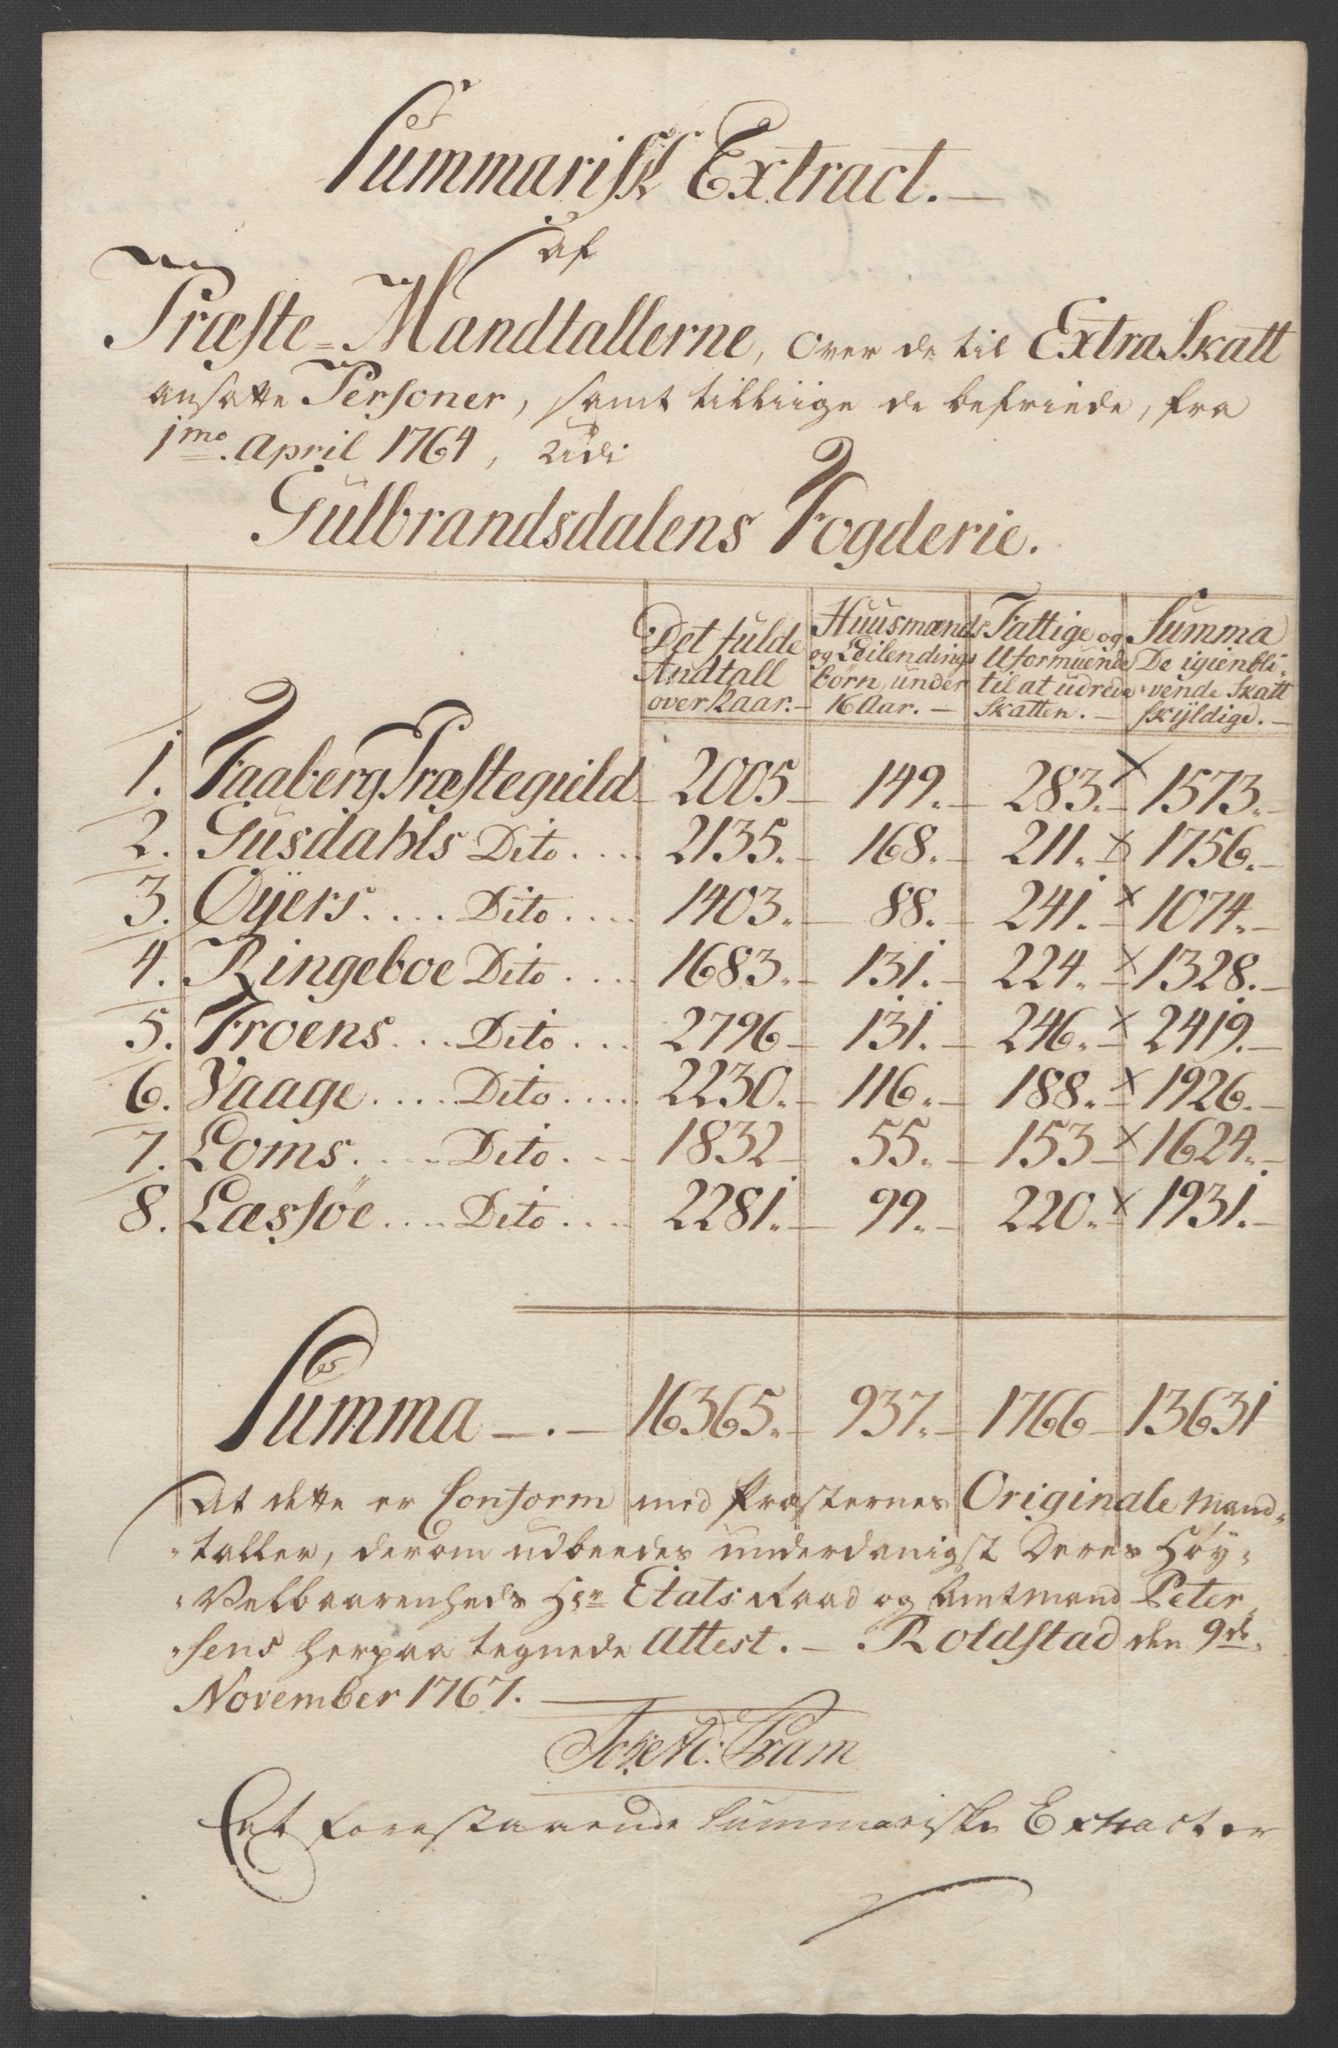 Summarisk Extract.
af
Præste-Mandtallerne, over de til Extra Skatt
ansatte Personer, samt tilliige de befriede, fra
1mo. April 1764, udi
Gulbrandsdalens Fogderie.
Det fulde Andtall over 12 aar. Huusmænds og Leilendings börn, under 16 Aar. Fattige og Uformuende til at udrede Skatten. Summa De igienbli-vende Skatt skÿldige.
1. Faaberg Præstegield 2005 149. 283. x 1573.
2. Gusdahls Dito 2135. 168. 211. x 1756.
3. Oÿers Dito 1403. 88. 241. x 1074.
4. Ringeboe Dito 1683. 131. 224. x 1328.
5. Froens Dito 2796 131. 246. x 2419.
6. Vaage Dito 2230. 116. 188. x 1926.
7. Loms Dito 1832 55. 153 x 1624.
8. Læssöe Dito 2281. 99. 220. x 1931.
Summa 16365. 937. 1766 13631
At dette er Conform med Præsternes Originale Mand-
taller, derom udbeedes underdanigst Deres Höy-
Velbaarenheds Hr Etats Raad og Amtmand Peter-
sens herpaa tegnede Attest. Roldstad den 9de
November 1767.
Pram
Det forestaaende Summariske Extract er